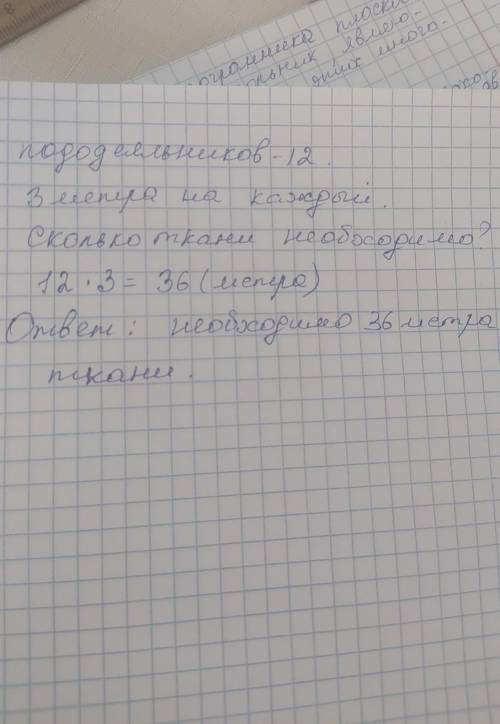 8
ограммиска плоско
ольник, явмею-
этих много.
пододеяльников-12.
3 метра на каждый.
Сколько ткани необходимо?
12 · 3 = 36 (метра)
Ответ: необходимо 36 метра
ткани.